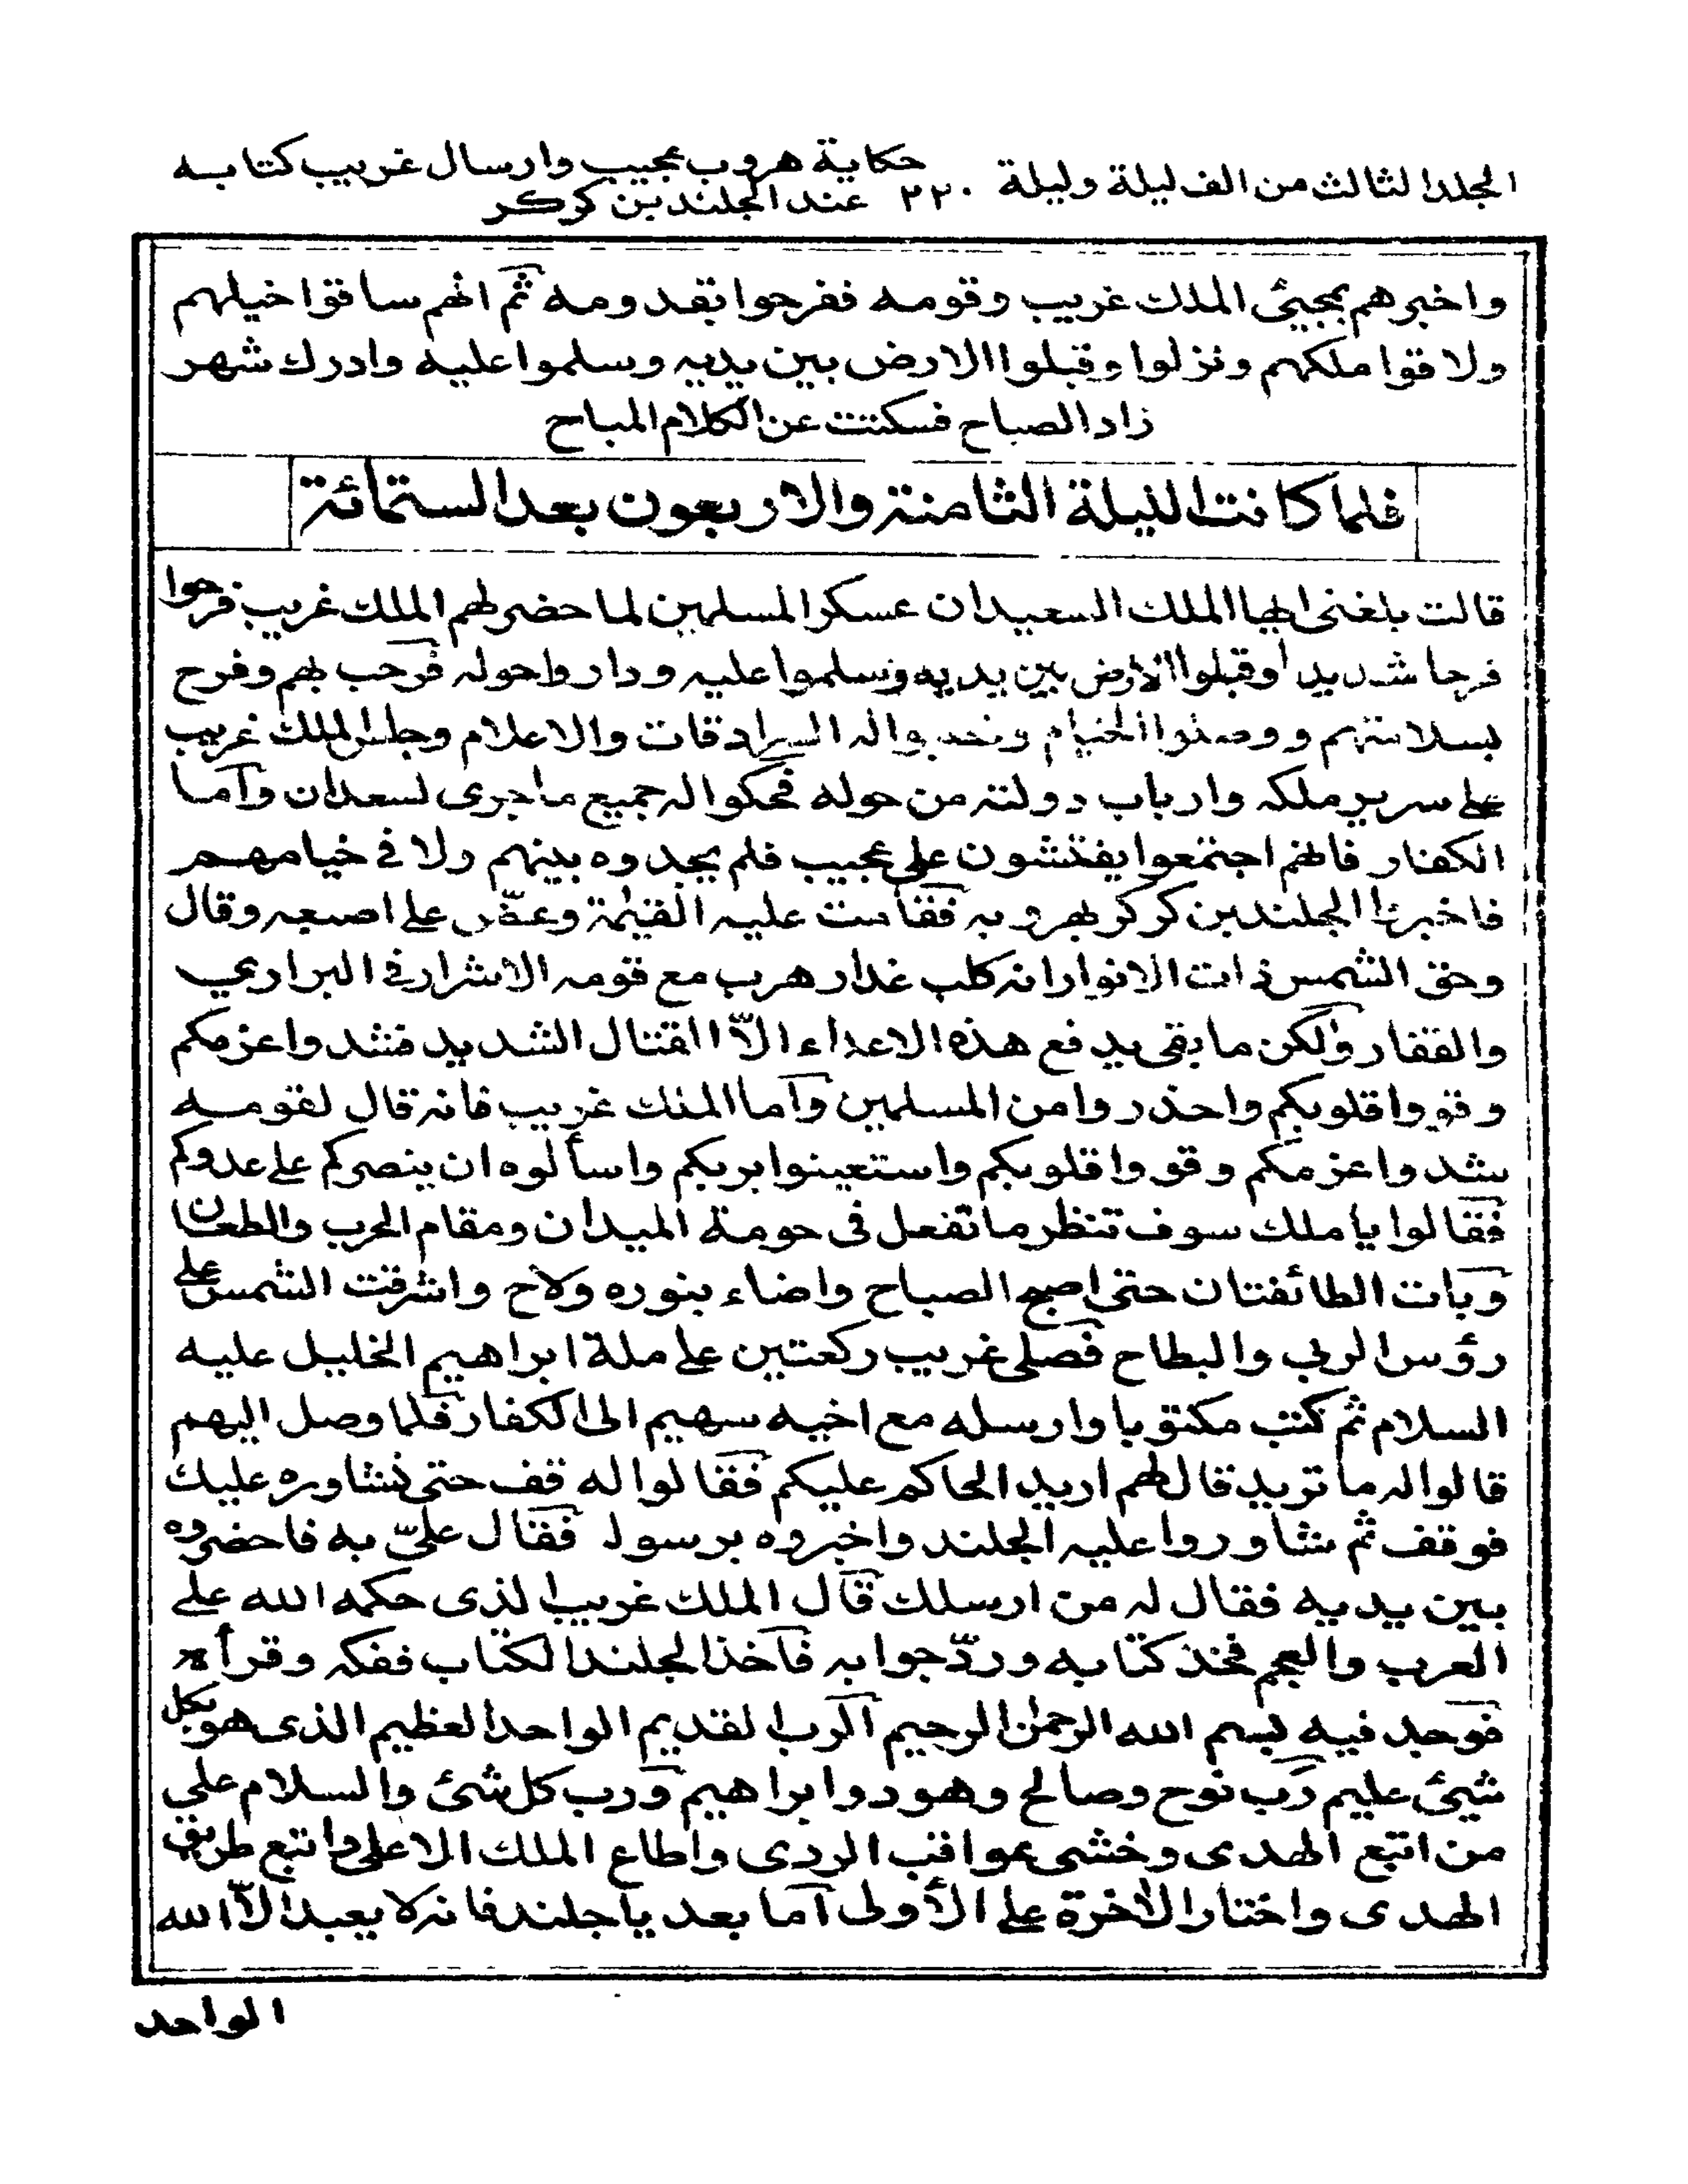 المجلد الثالث من الف ليلة وليلة ٢٢٠ حكاية هروب عجيب وارسال غريب كتابه
عند الجلند بن كركر
واخبرهم بمجيئ الملك غريب وقومه ففرحوا بقدومه ثم انهم ساقوا خيلهم
ولاقوا ملكهم ونزلوا وقبلوا الارض بين يديه وسلموا عليه وادرك شهر
زاد الصباح فسكتت عن الكلام المباح
فلما كانت الليلة الثامنة والاربعون بعد الستمائة
قالت بلغنى ايها الملك السعيد ان عسكر المسلمين لما حضر لهم الملك غريب فرحوا
فرحا شديدا وقبلوا الارض بين يديه وسلموا عليه وداروا حوله فرحب بهم وفرح
بسلامتهم ووصلوا الخيام ونصبوا له السرادقات والاعلام وجلس الملك غريب
على سرير ملكه وارباب دولته من حوله فحكوا له جميع ماجرى لسعدان وأما
الكفار فانهم اجتمعوا يفتشون على عجيب فلم يجدوه بينهم ولا فى خيامهم
فاخبروا الجلند بن كركر بهروبه فقامت عليه القيٰمة وعضّ على اصبعه وقال
وحق الشمس ذات الانوار انه كلب غدار هرب مع قومه الاشرار فى البراري
والقفار ولٰكن ما بقى يدفع هذه الاعداء الّا القتال الشديد فشدوا عزمكم
وقووا قلوبكم واحذروا من المسلمين وأما الملك غريب فانه قال لقومه
شدوا عزمكم وقووا قلوبكم واستعينوا بربكم واسألوه ان ينصركم على عدوكم
فقالوا يا ملك سوف تنظر ما نفعل فى حومة الميدان ومقام الحرب والطعان
وبات الطائفتان حتى اصبح الصباح واضاء بنوره ولاح واشرقت الشمس على
رؤس الربى والبطاح فصلى غريب ركعتين على ملة ابراهيم الخليل عليه
السلام ثم كتب مكتوبا وارسله مع اخيه سهيم الى الكفار فلما وصل اليهم
قالوا له ما تريد قال لهم اريد الحاكم عليكم فقالوا له قف حتى نشاوره عليك
فوقف ثم شاوروا عليه الجلند واخبروه برسول فقال علىّ به فاحضروه
بين يديه فقال له من ارسلك قال الملك غريب الذى حكمه الله على
العرب والعجم فخذ كتابه وردّ جوابه فأخذ الجلند الكتاب ففكه وقرأه
فوجد فيه بسم الله الرحمٰن الرحيم الرب القديم الواحد العظيم الذى هو بكل
شيئ عليم رب نوح وصالح وهود وابراهيم ورب كل شئ والسلام على
من اتبع الهدى وخشى عواقب الردى واطاع الملك الاعلى واتبع طريق
الهدى واختار الاخرة على الأولى أما بعد يا جلند فانه لا يعبد الّا الله
الواحد